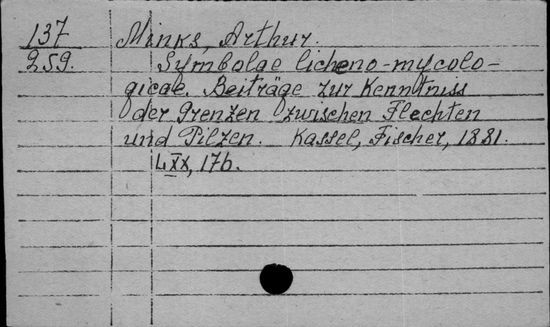 137 Minks, Arthur.
259. Symbolae licheno-mycolo-
gicae. Beiträge zur Kenntniss
der Grenzen zwischen Flechten
und Pilzen. Kassel, Fischer, 1881.
176.